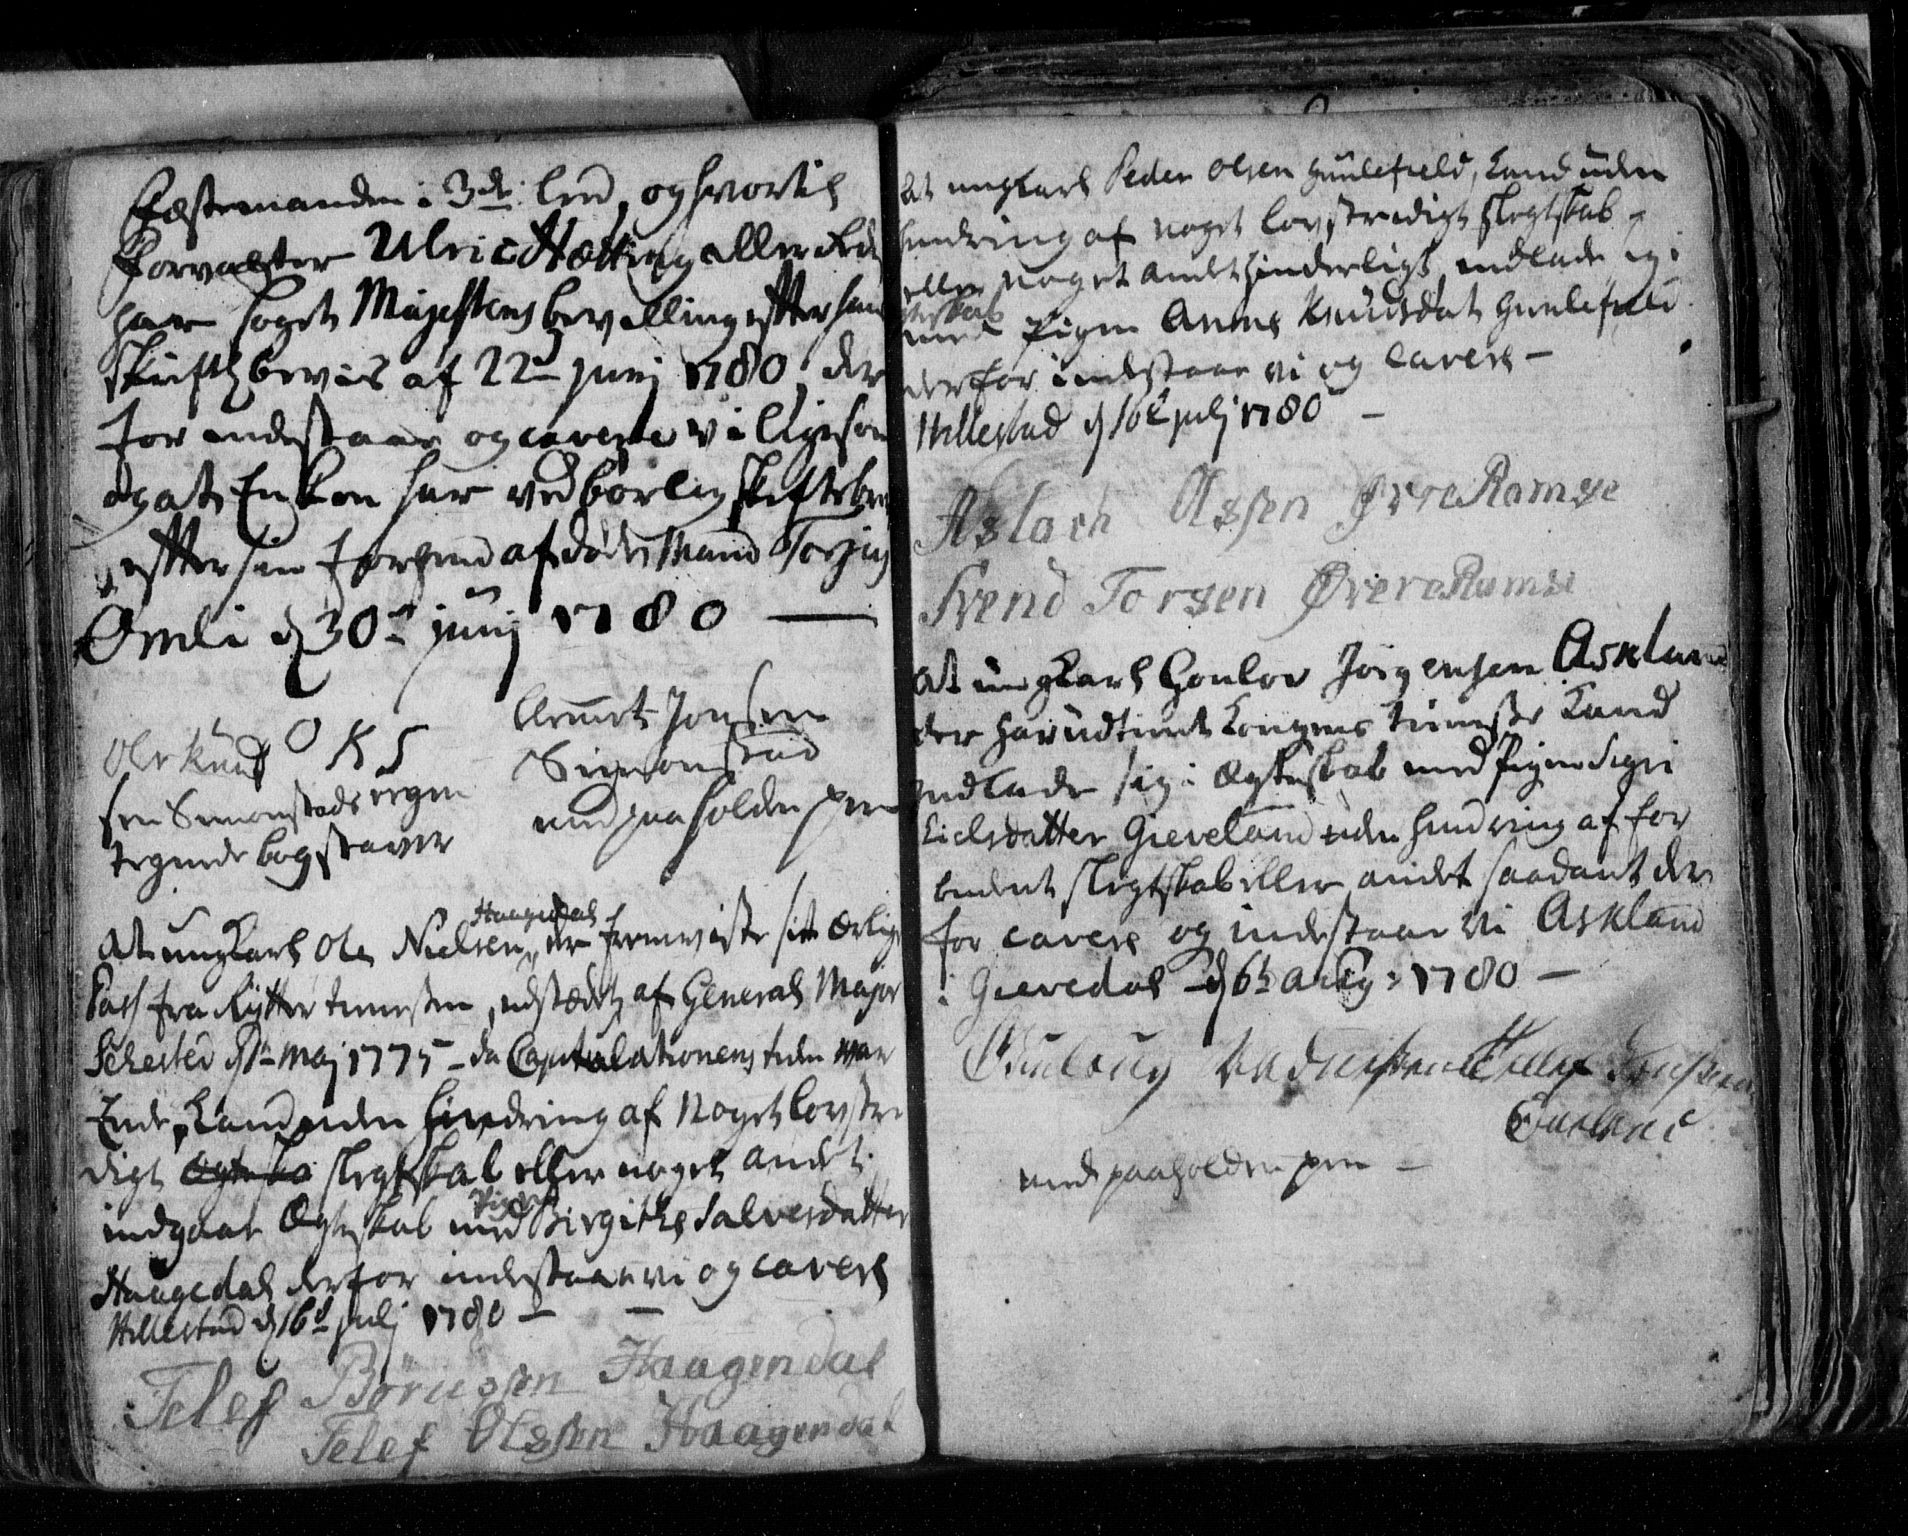 Fæstemanden i 3de: led, og hvortil
Forvalter Ulric Hetting allerede
har søgt Majestens bevilling efter hans
skriftl bevis af 22 Junj 1780, der
for indestaar og cavere vi ligesom
og at Enken har vedbørlig skiftebrev
efter sin forhend afdøde Mand Torjus
Omli d 30te junj 1780 —
Ole Knud O K S
sen Simonstads egen
tegnede bogstaver
Aanert Jonsen
Simonstad
med paaholden pen
Haagedal
At ungkarl Ole Nielsen, der fremviste sit ærlige
Pas fra Rytter tienesten, udstædet af General Major
Sehested d 1te Maj 1775 - da Capitulationens tiden var
Ende, kand uden hindring af noget lovstri
digt Ægteska slegtskab eller noget andet
Pigen
indgaae Ægteskab med Birgithe Salvesdatter
Haagedal derfor indestaar vi og caverer
Hillestad d 16d julj 1780 —
Telef Börussen Haagendal
Telef Olssen Haagendal
At ungkarl Peder Olsen Guulefield, kand uden
hindring af noget lovstridigt slegtskab
eller noget andet hinderligt indlade sig i
Ægteskab
med Pigen Anne Knudsdat Guulefield
derfor indestaar vi og caverer —
Hillestad d 16de julj 1780 —
Aslach Olssen Øvre Ramse
Svend Torsen Øvere Ramse
At ungkarl Gonlov Jörgensen Askland
der har udtient Kongens tieneste kand
indlade sig i Ægteskab med Pigen Sigri
Eielsdatter Gieveland uden hindring af for
budent slegtskab eller andet saadant der
for caverer og indestaar vi Askland
i Gievedal d 6t Aug: 1780 —
Gunloug Knudssen Tellef Jenssen
med paaholden pen —